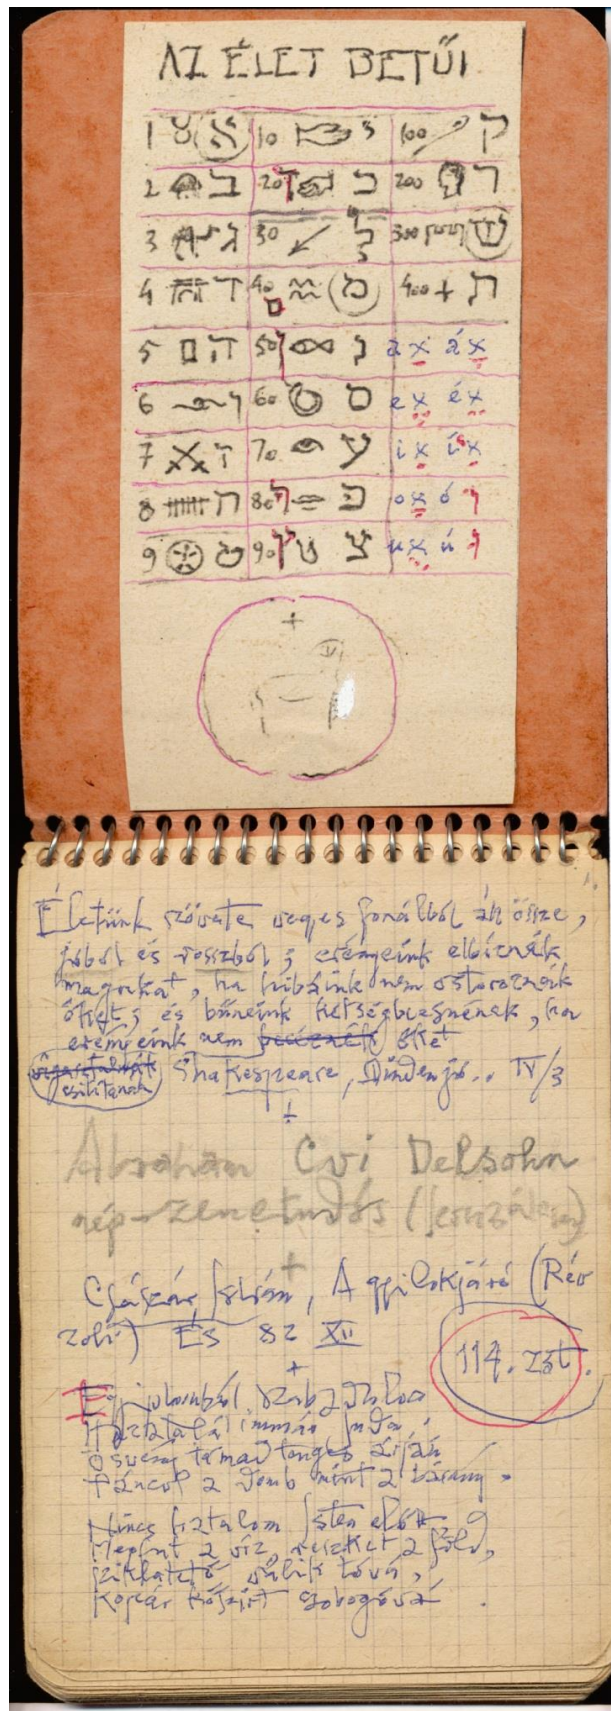 AZ ÉLET BETŰI
1 א 10 י 100 ק
2 ב 20 ך כ 200 ר
3 ג 30 ל 300 ש
4 ד 40 ם מ 400 ת
5 ה 50 ן נ a x á x
6 ו 60 ס e x é x
7 ז 70 ע i x í x
8 ח 80 ף פ o x ó ו
9 ט 90 ץ צ u x ú ו
Életünk szövete vegyes fonálból áll össze,
jóból és rosszból; erényeink elbíznák
magukat, ha hibáink nem ostoroznák
őket; és bűneink kétségbeesnének, ha
erényeink nem őket
Shakespeare, Minden jó.. IV/3
+
Abraham Cvi Delsohn
nép-zenetudós (Jeruzsálem)
+
Császár István, A gyilokjáró (Rév
) ÉS 82 XII
114. zst.
+
Egyiptomból
Háztalál immár Juda,
Ösvény támad tenger árján
Táncol a domb mint a bárány.
Nincs hatalom Isten előtt
Megfut a víz, reszket a föld,
Sziklatető válik tóvá,
Kopár kőszirt zobogóvá.